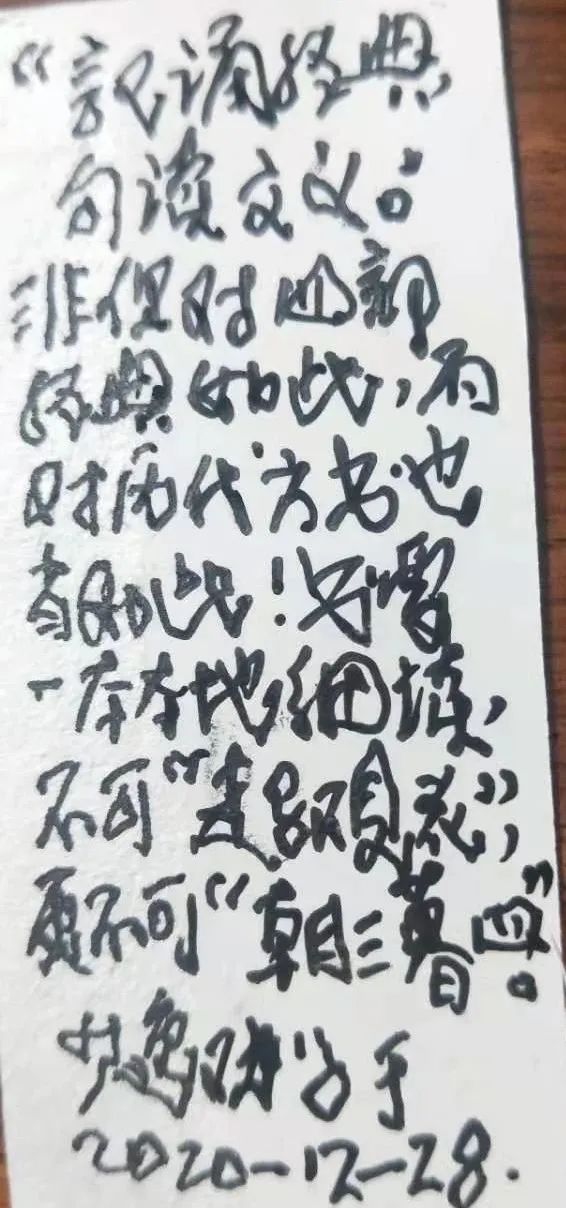 “记诵经典,
句读文义。
非但对四部
经典如此,而
对历代方书也
者如此!另需
一本本地细读,
不可“走马观花”,
更不可“朝三暮四”。
于
2020-12-28.